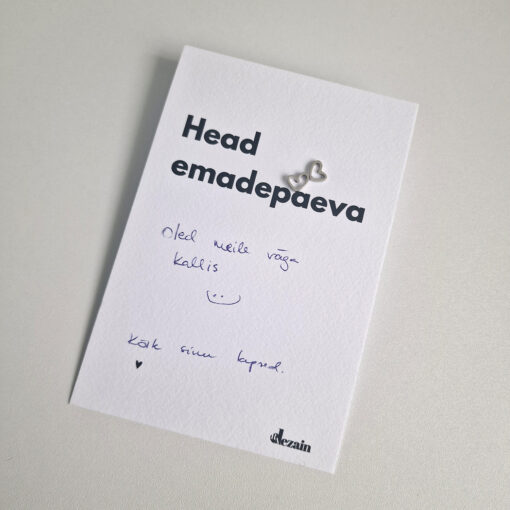 Head
emadepaeva
Oled meile väga
kallis
Kõik sinu lapsed.
dezain